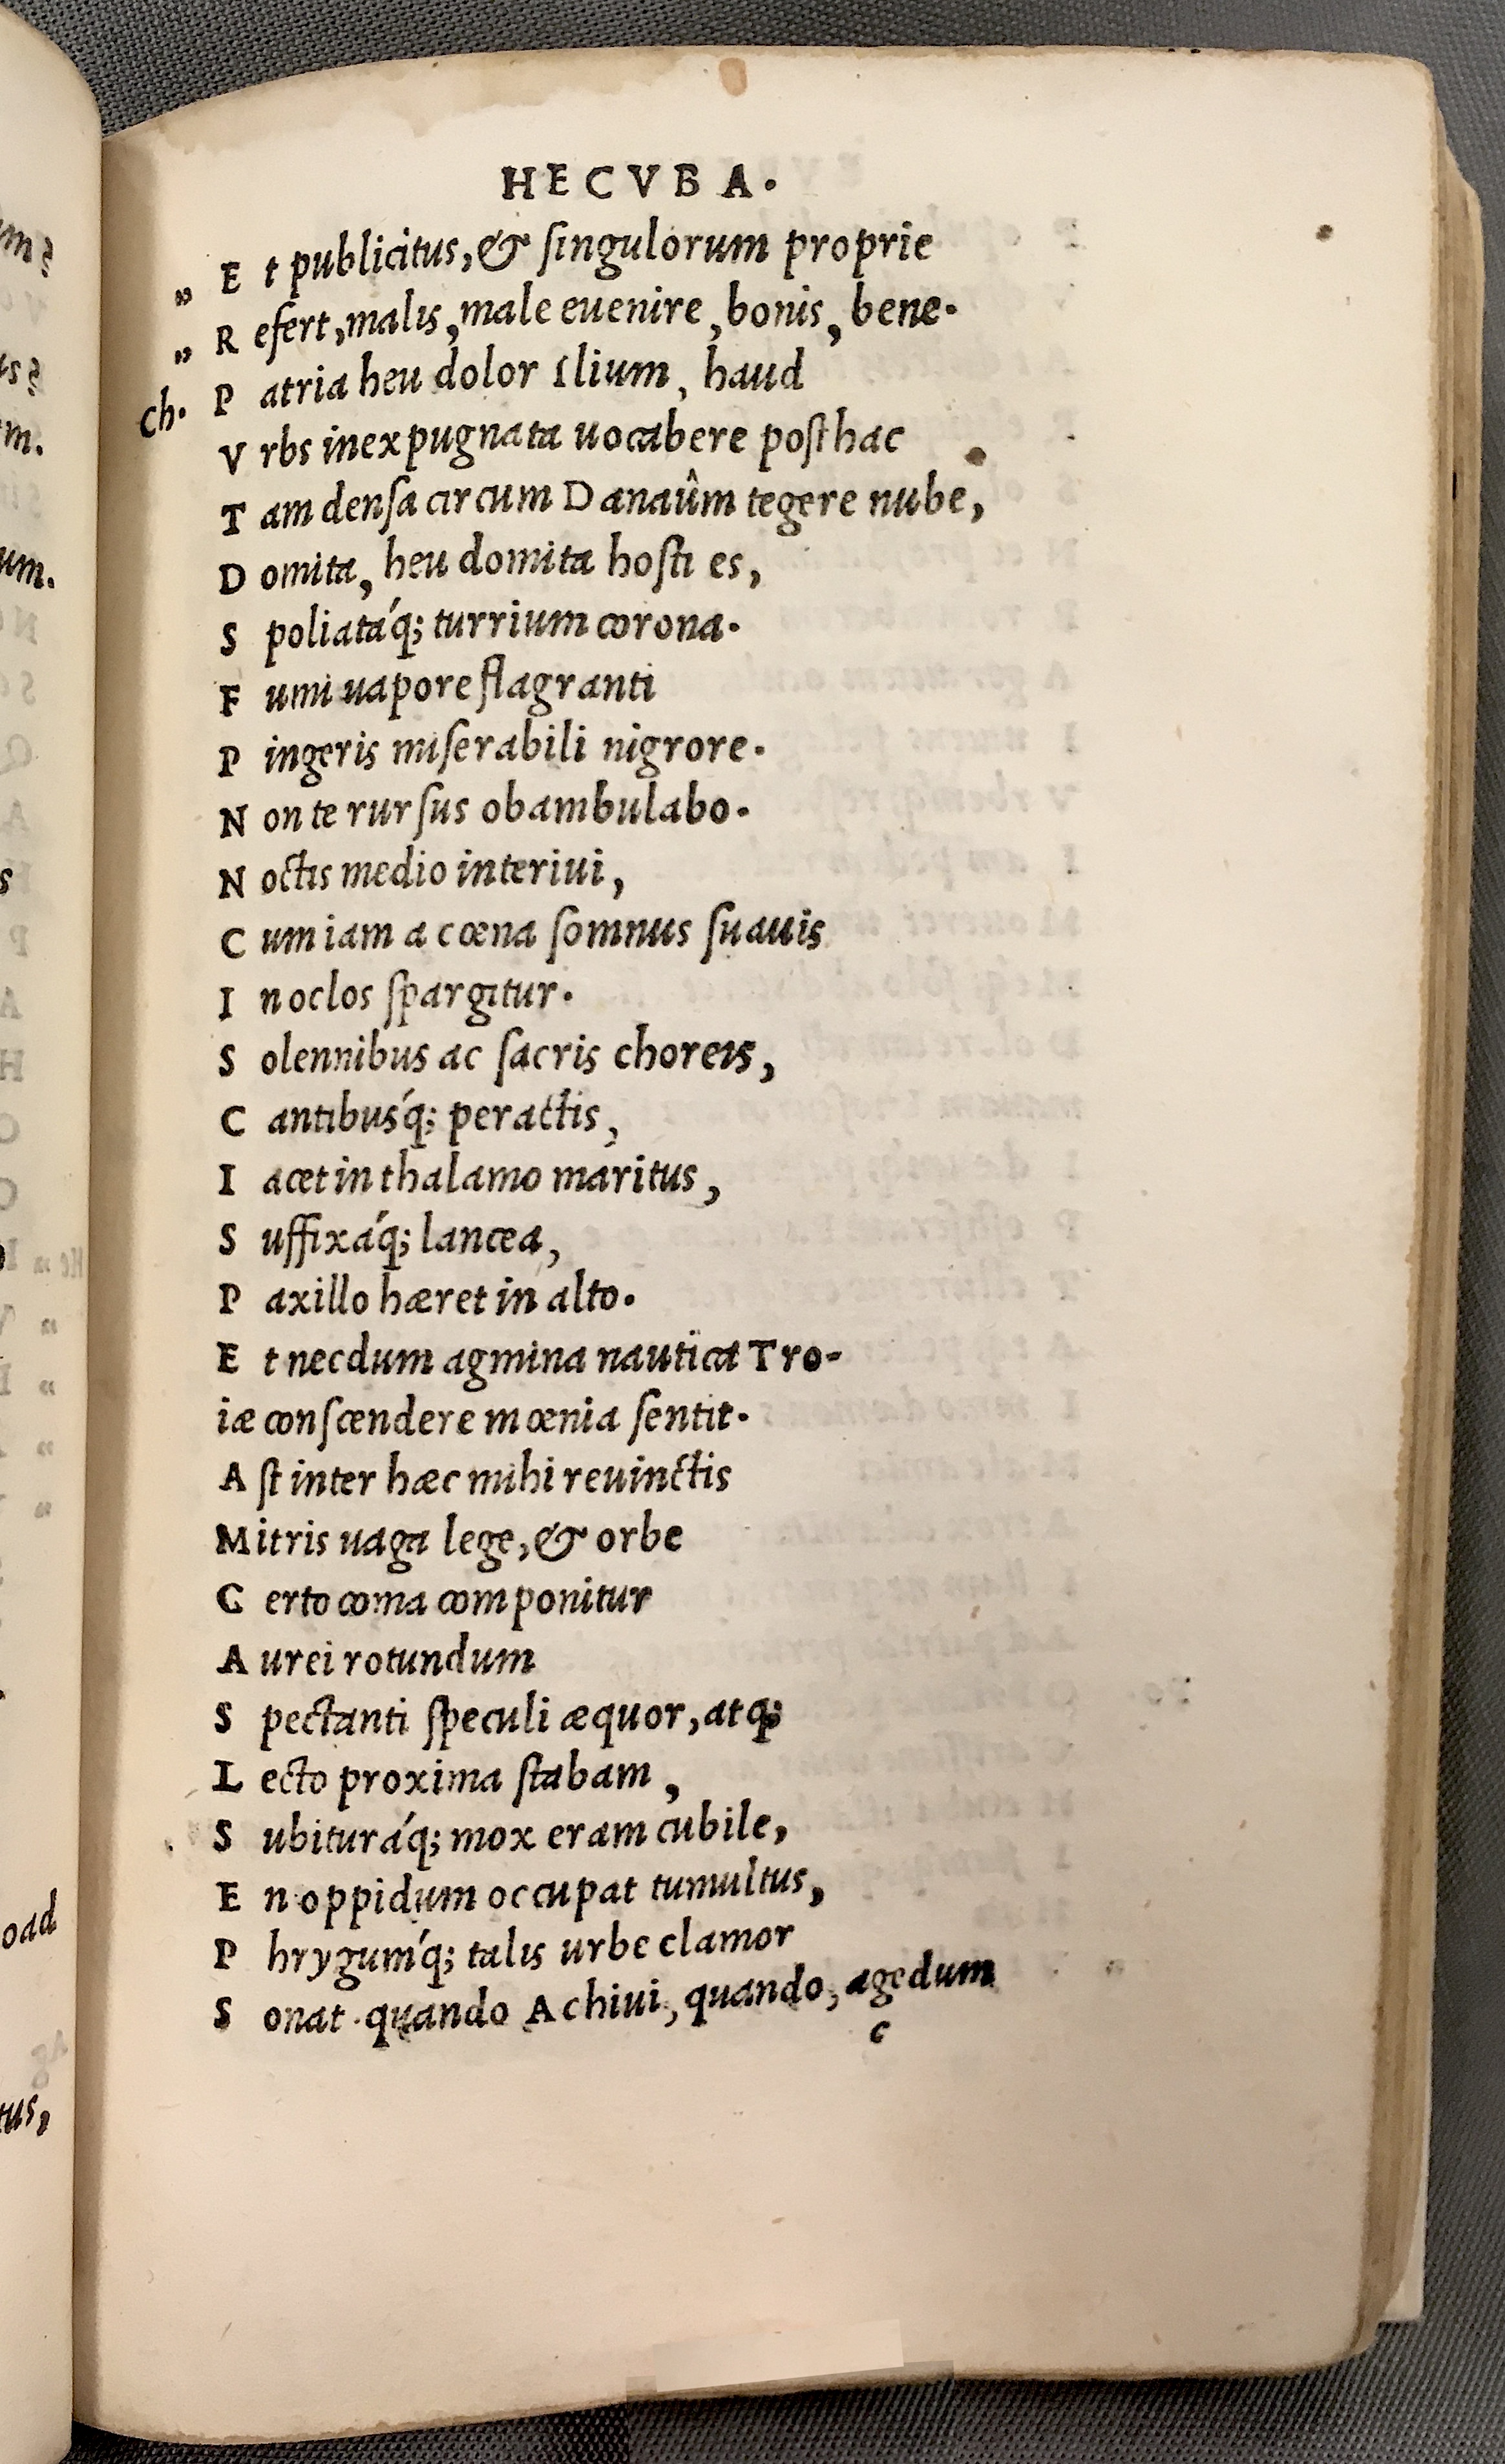 HECVBA.
„ Et publicitus, & ſingulorum proprie
„ Refert, malis, male euenire, bonis, bene.
Ch. Patria heu dolor Ilium, haud
Vrbs inexpugnata uocabere poſthac
Tam denſa circum Danaûm tegere nube,
Domita, heu domita hoſti es,
Spoliatáq; turrium corona.
Fumi uapore flagranti
Pingeris miſerabili nigrore.
Non te rurſus obambulabo.
Noctis medio interiui,
Cum iam a cœna ſomnus ſuauis
In oclos ſpargitur.
Solennibus ac ſacris choreis,
Cantibusq́; peractis,
Iacet in thalamo maritus,
Suffixáq; lancea,
Paxillo hæret in alto.
Et necdum agmina nautica Tro-
iæ conſcendere mœnia ſentit.
Aſt inter hæc mihi reuinctis
Mitris uaga lege, & orbe
Certo coma componitur
Aurei rotundum
Spectanti ſpeculi æquor, atq;
Lecto proxima ſtabam,
Subituráq; mox eram cubile,
En oppidum occupat tumultus,
Phrygumq́; talis urbe clamor
Sonat. quando Achiui, quando, agedum
c